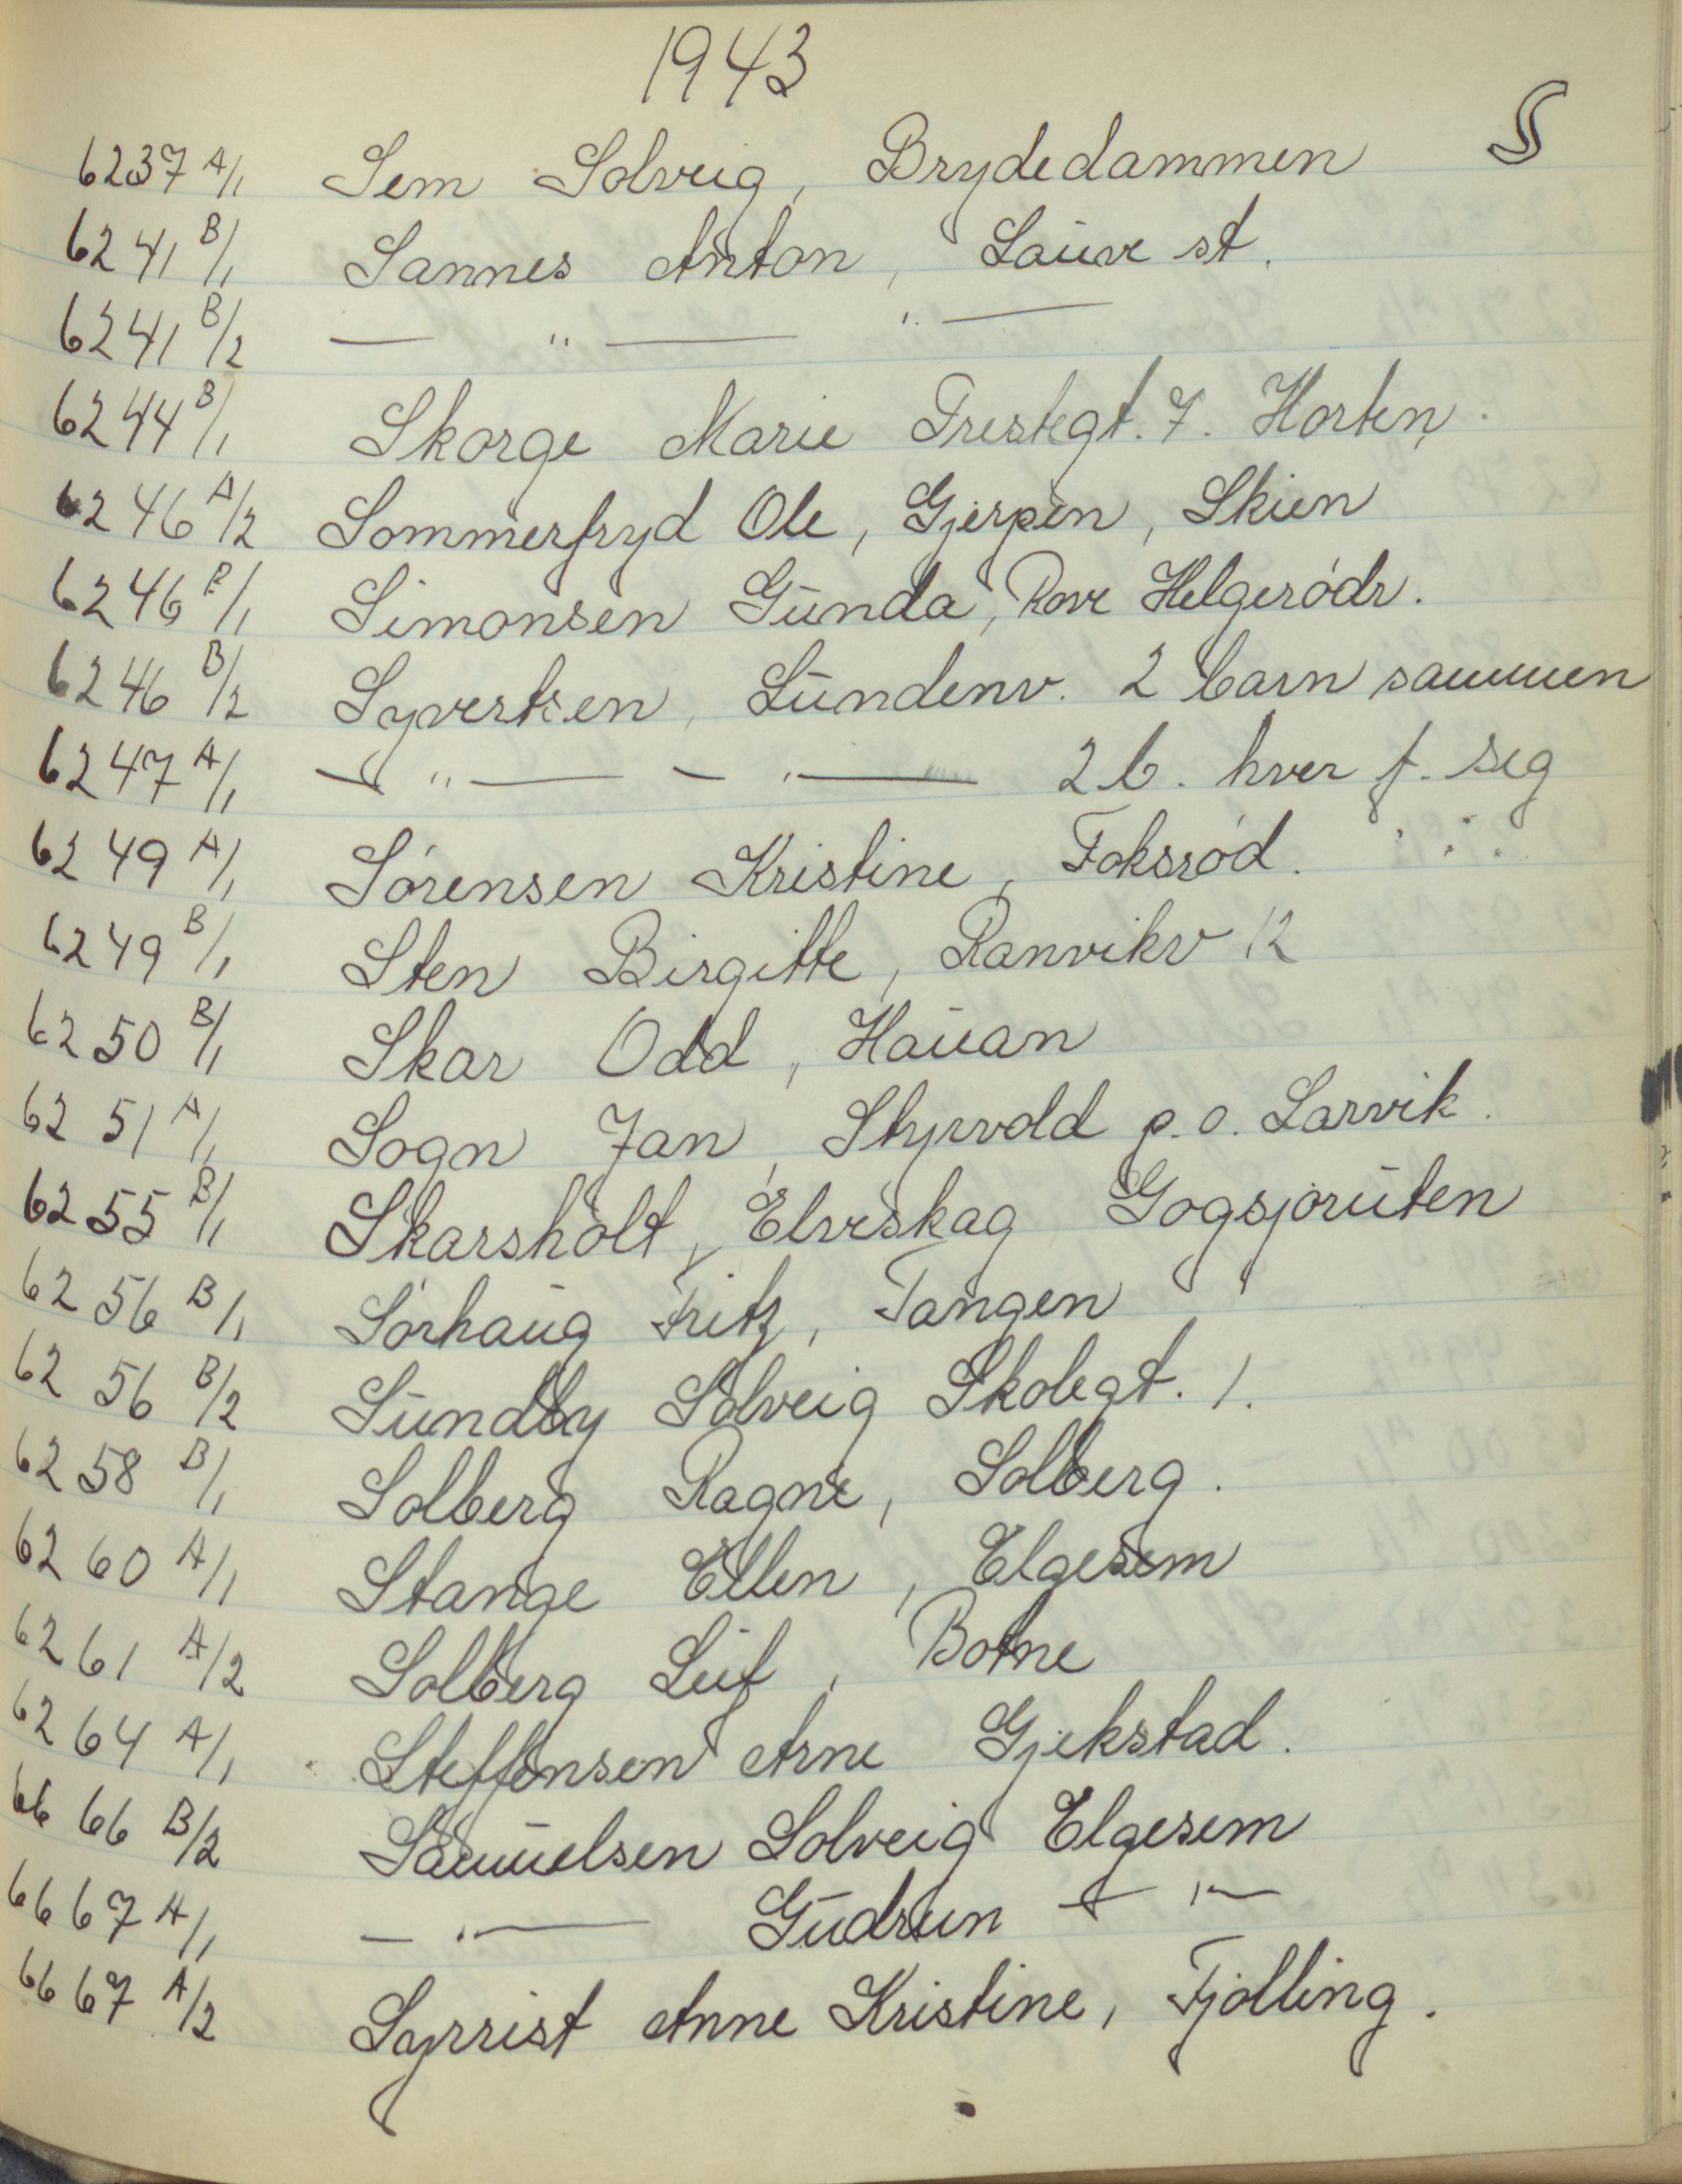 1943
S
6237 A/1 Sem Solveig, Brydedammen
6241 B/1 Sannes Anton, Lauve st.
6241 B/2 — " — " —
6244 B/1 Skorge Marie Prestegt. 7. Horten.
6246 A/2 Sommerfryd Ole, Gjerpen, Skien
6246 B/1 Simonsen Gunda, Rove Helgerødv.
6246 B/2 Syvertsen, Lundenv. 2 barn sammen
6247 A/1 — " — — " — 2 b. hver f. seg
6249 A/1 Sørensen Kristine, Foksrød.
6249 B/1 Sten Birgitte, Ranvikv 12
6250 B/1 Skar Odd, Hauan
6251 A/1 Sogn Jan, Styrvold p.o. Larvik.
6255 B/1 Skarsholt, Elveskag Gogsjøruten
6256 B/1 Sørhaug Fritz, Tangen
6256 B/2 Sundby Solveig Skolegt. 1.
6258 B/1 Solberg Ragne, Solberg.
6260 A/1 Stange Ellen, Elgesem
6261 A/2 Solberg Leif, Botne
6264 A/1 Steffensen Arne Gjekstad.
6666 B/2 Samuelsen Solveig Elgesem
6667 A/1 — " — Gudrun — " —
6667 A/2 Syrrist Anne Kristine, Tjølling.